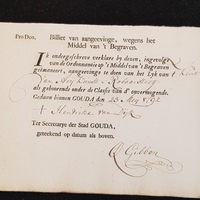 Pro Deo. Billiet van aangeevinge, wegens het
Middel van 't Begraven.
IK ondergeschreve verklare by dezen, ingevolge
van de Ordonnantie op 't Middel van 't Begraven
geëmaneert, aangeevinge te doen van het Lyk van 't Kind
van
als gehoorende onder de Classis van d' onvermogende.
Gedaan binnen GOUDA den 23 May 1792
Hendrika van Dyk
Ter Secretarye der Stad GOUDA,
geteekend op datum als boven.